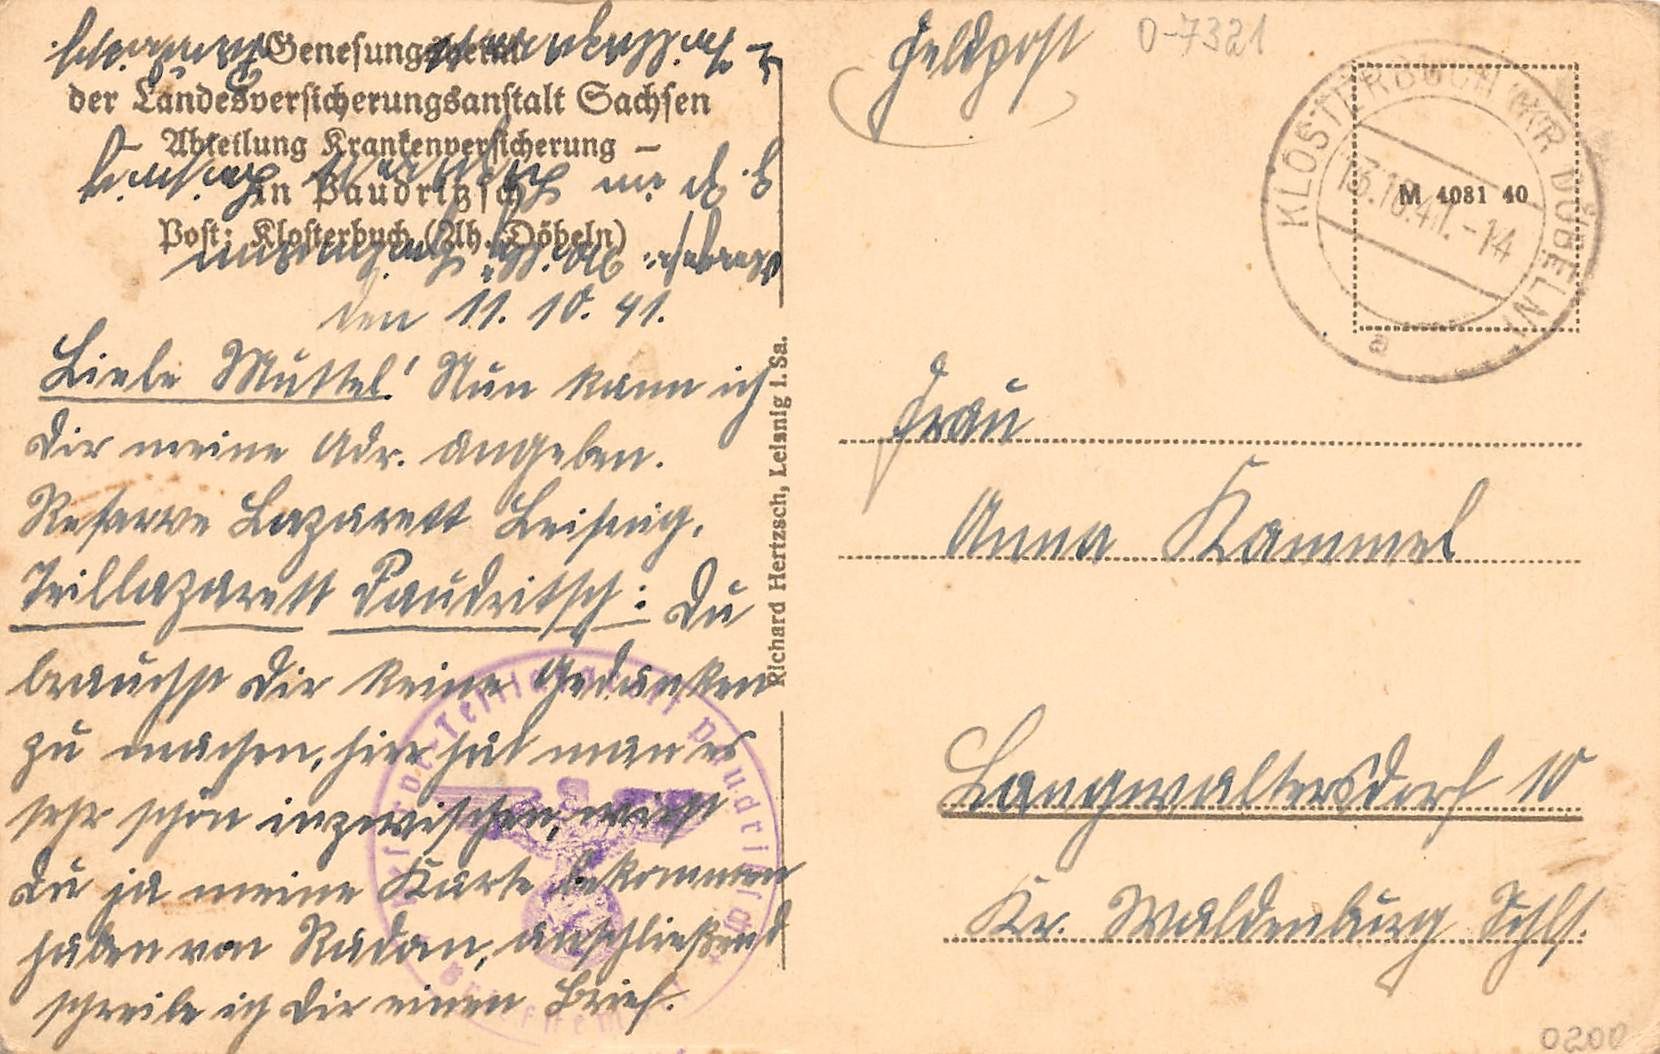 Genesungsheim
der Landesversicherungsanstalt Sachsen
— Abteilung Krankenversicherung —
in Paudritzsch
Post: Klosterbuch (Ah. Döbeln)
den 11. 10. 41.
Liebe Muttel! Nun kann ich
Dir meine Adr. angeben.
Reserve Lazarett Leisnig,
Teillazarett Paudritsch: Du
brauchst Dir keine Gedanken
zu machen, hier hat man es
sehr schön inzwischen, wirst
Du ja meine Karte bekommen
haben von anschließend
schreibe ich Dir einen Brief.
Richard Hertzsch, Leisnig i. Sa.
Feldpost
0-7321
KLOSTERBUCH (KR DÖBELN)
13.10.41.-14
a
M 4081 40
Frau
Anna Kammel
Langwaltersdorf 10
Kr. Waldenburg Schls.
Reserve-Teillazarett Paudritzsch
Briefstempel
0200